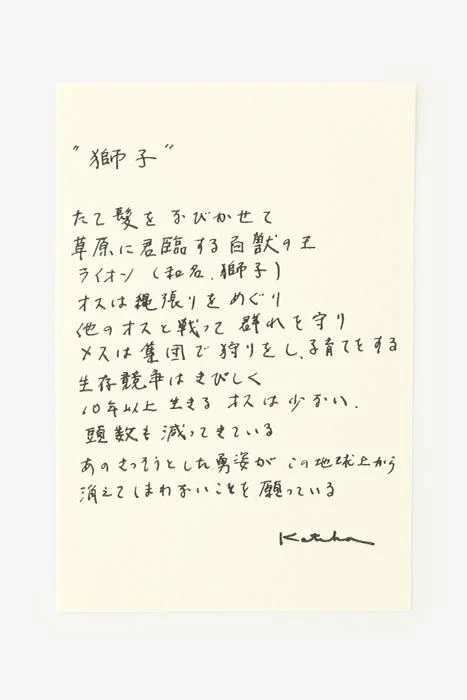 "獅子"
たて髪をなびかせて
草原に君臨する百獣の王
ライオン (和名.獅子)
オスは縄張りをめぐり
他のオスと戦って 群れを守り
メスは集団で狩りをし、子育てをする
生存競争はきびしく
10年以上 生きる オスは少ない.
頭数も減ってきている
あのさっそうとした勇姿が この地球上から
消えてしまわないことを願っている